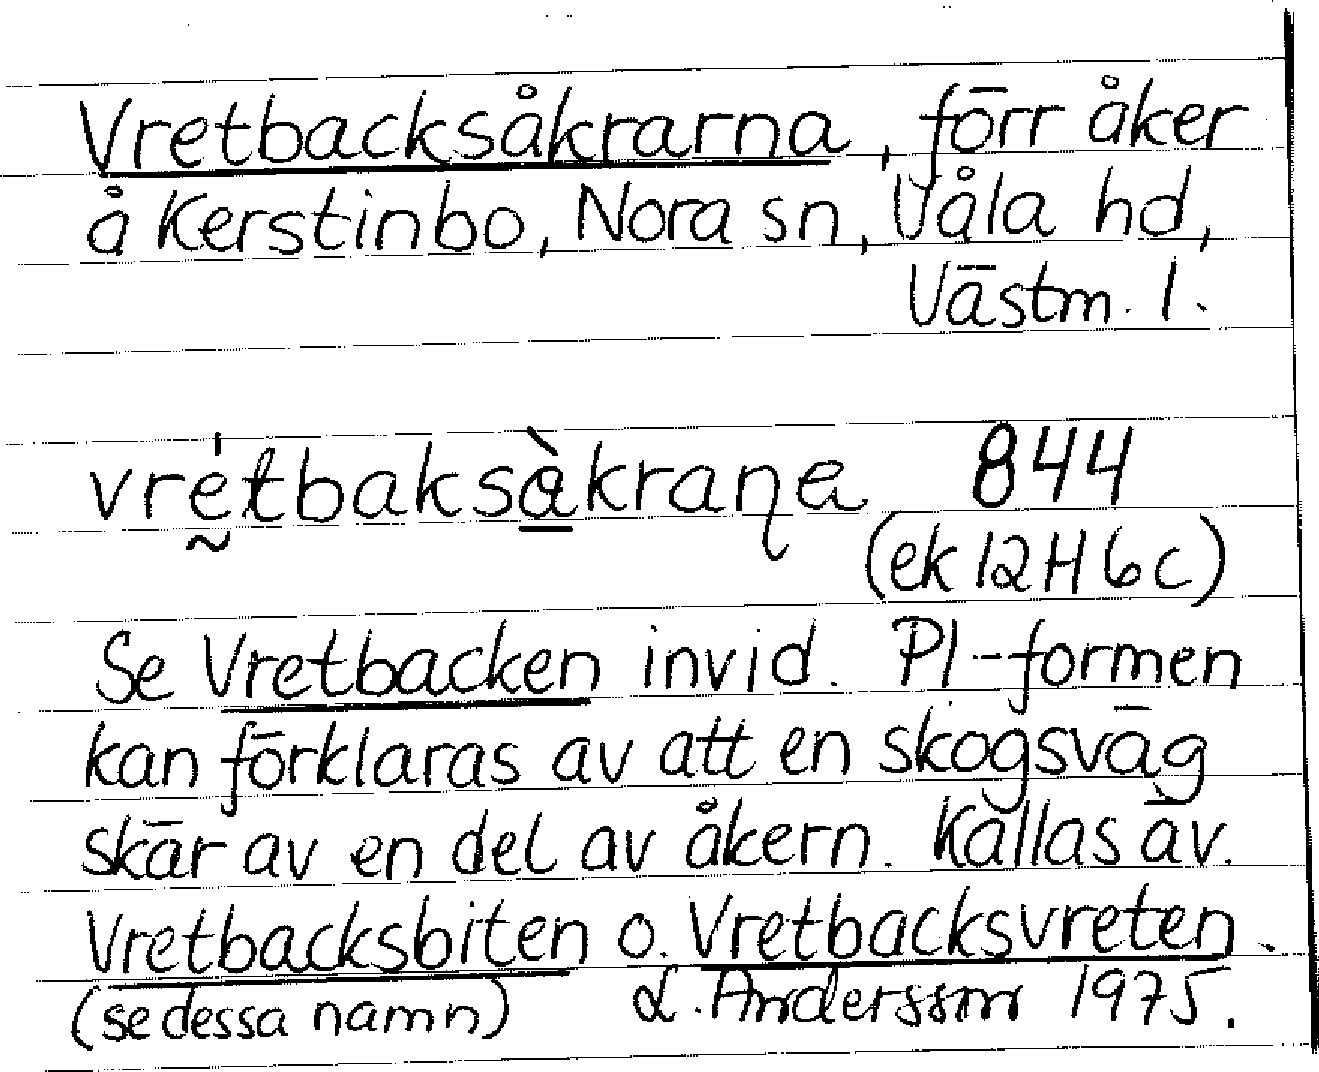 Vretbacksåkrarna, förr åker
å Kerstinbo, Nora sn, Våla hd,
Västm. l.
vrétbaksàkraņa 844
(ek 12H6c)
Se Vretbacken invid. Pl-formen
kan förklaras av att en skogsväg
skär av en del av åkern. Kallas äv.
Vretbacksbiten o. Vretbacksvreten.
(se dessa namn) L. Andersson 1975.